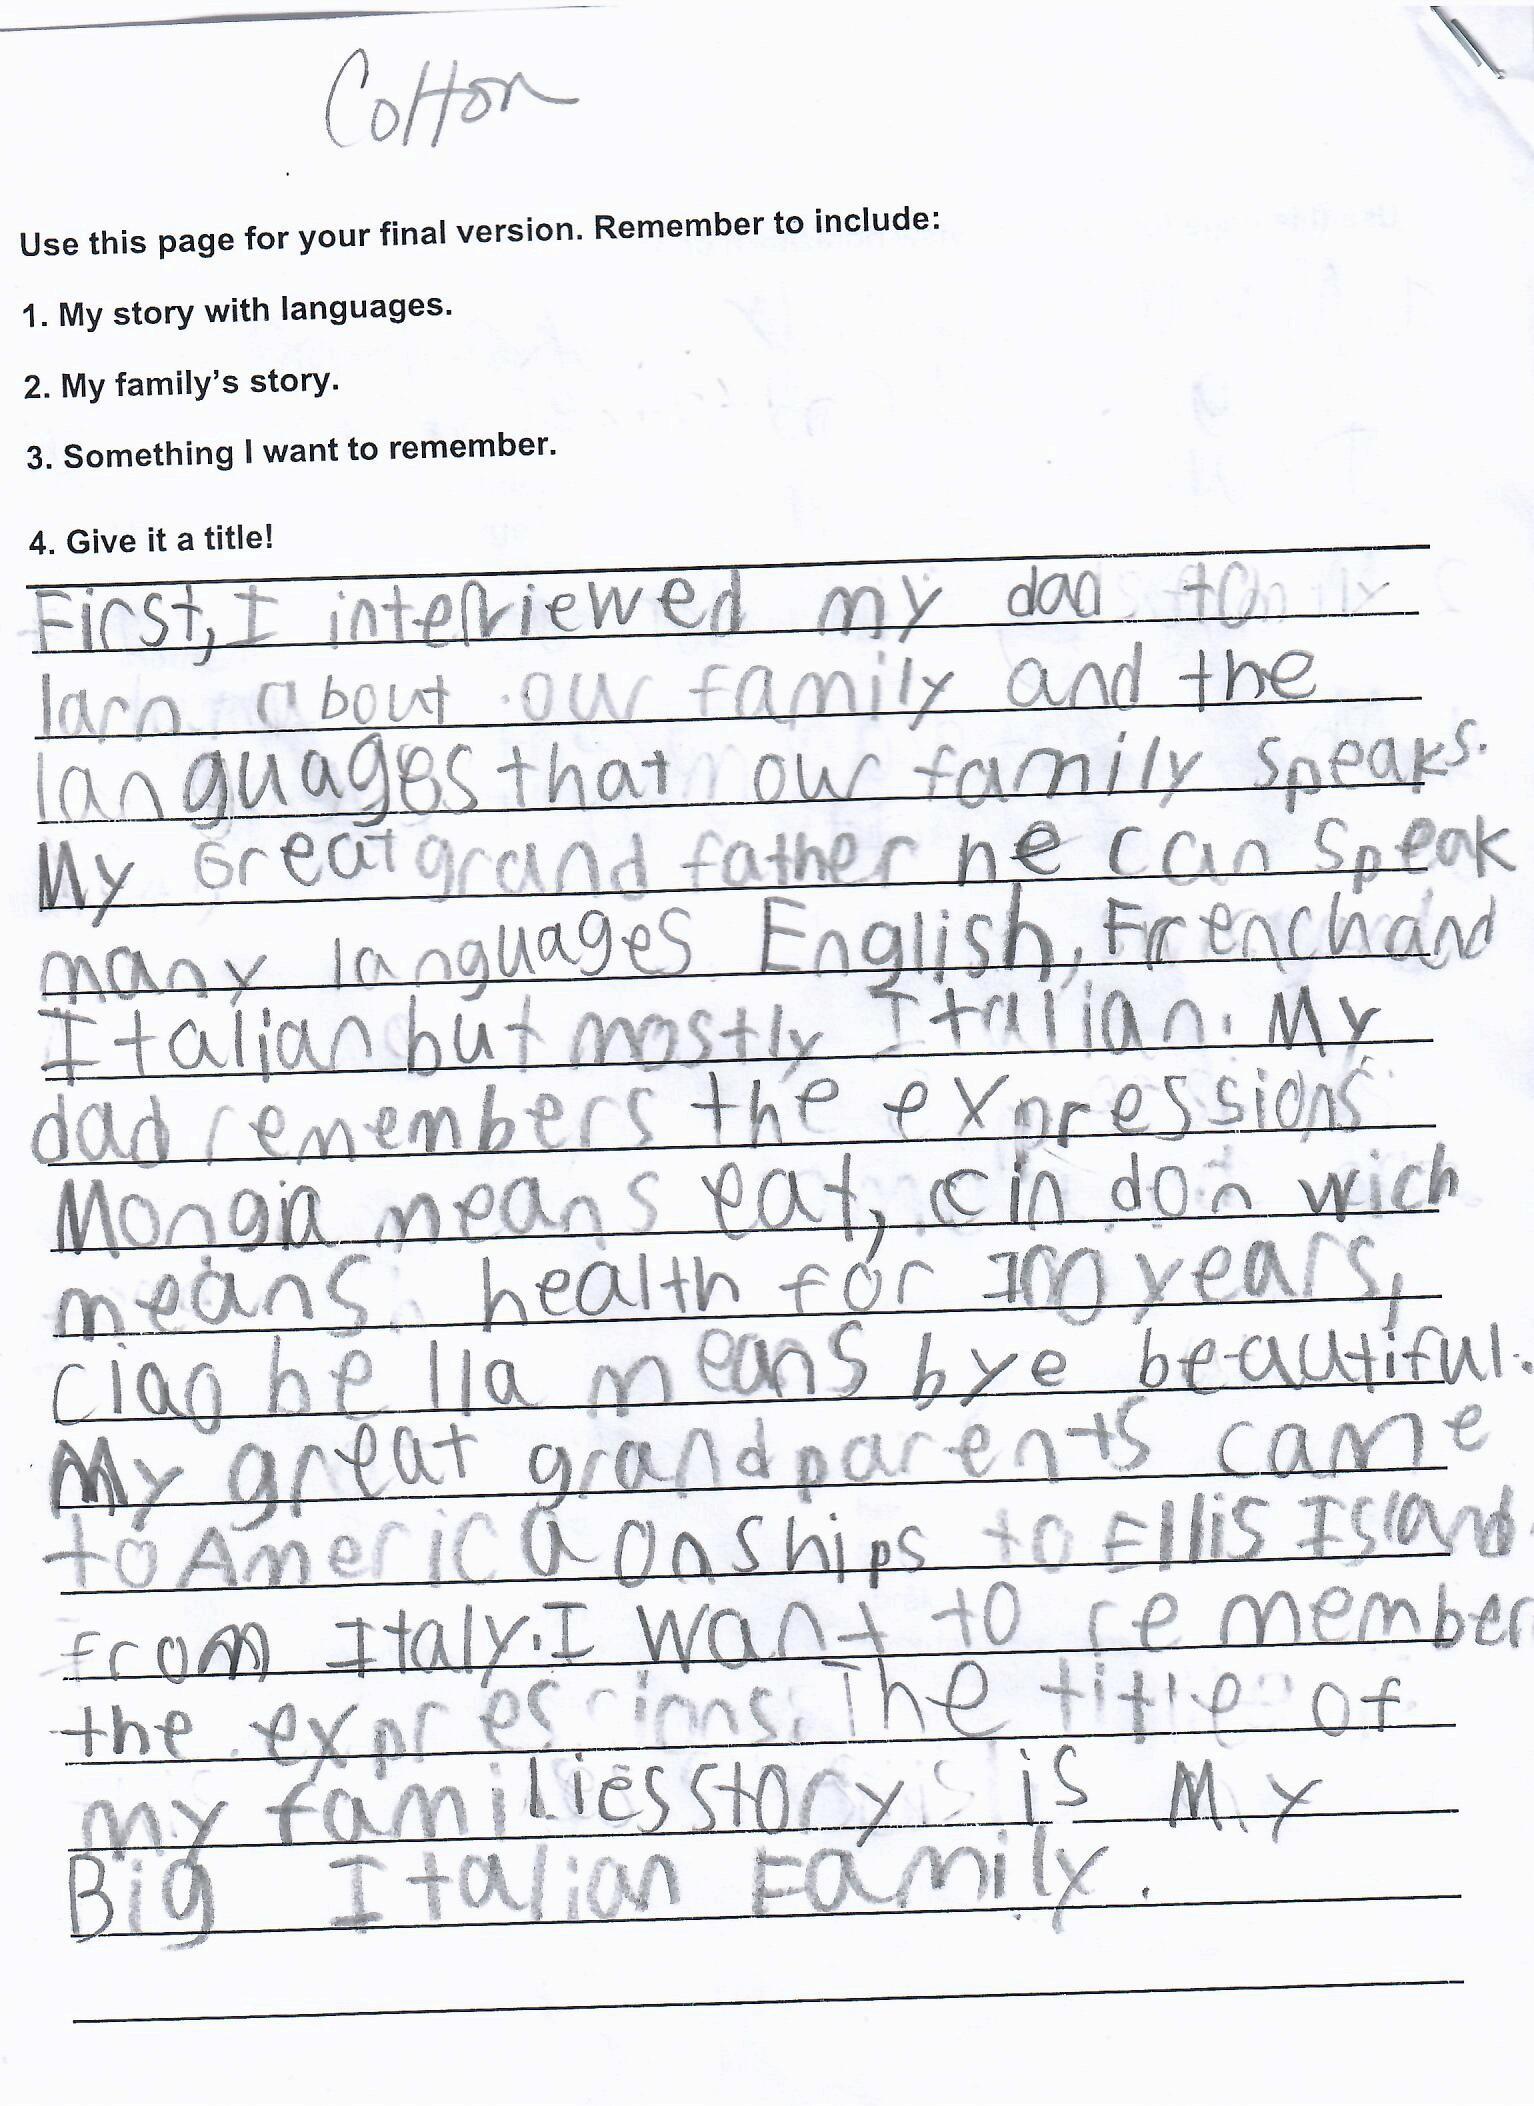 Colton
Use this page for your final version. Remember to include:
1. My story with languages.
2. My family's story.
3. Something I want to remember.
4. Give it a title!
First, I interviewed my dad
larn about our family and the
languages that our family speaks.
My Great grand father he can speak
many languages English, French and
Italian but mostly Italian. My
dad remembers the expressions
Mongia means eat, cin don wich
means health for 100 years,
ciao bella means bye beautiful.
My great grandparents came
to America on ships to Ellis Island
from Italy. I want to remember
the expressions. The title of
my families story is My
Big Italian Family.